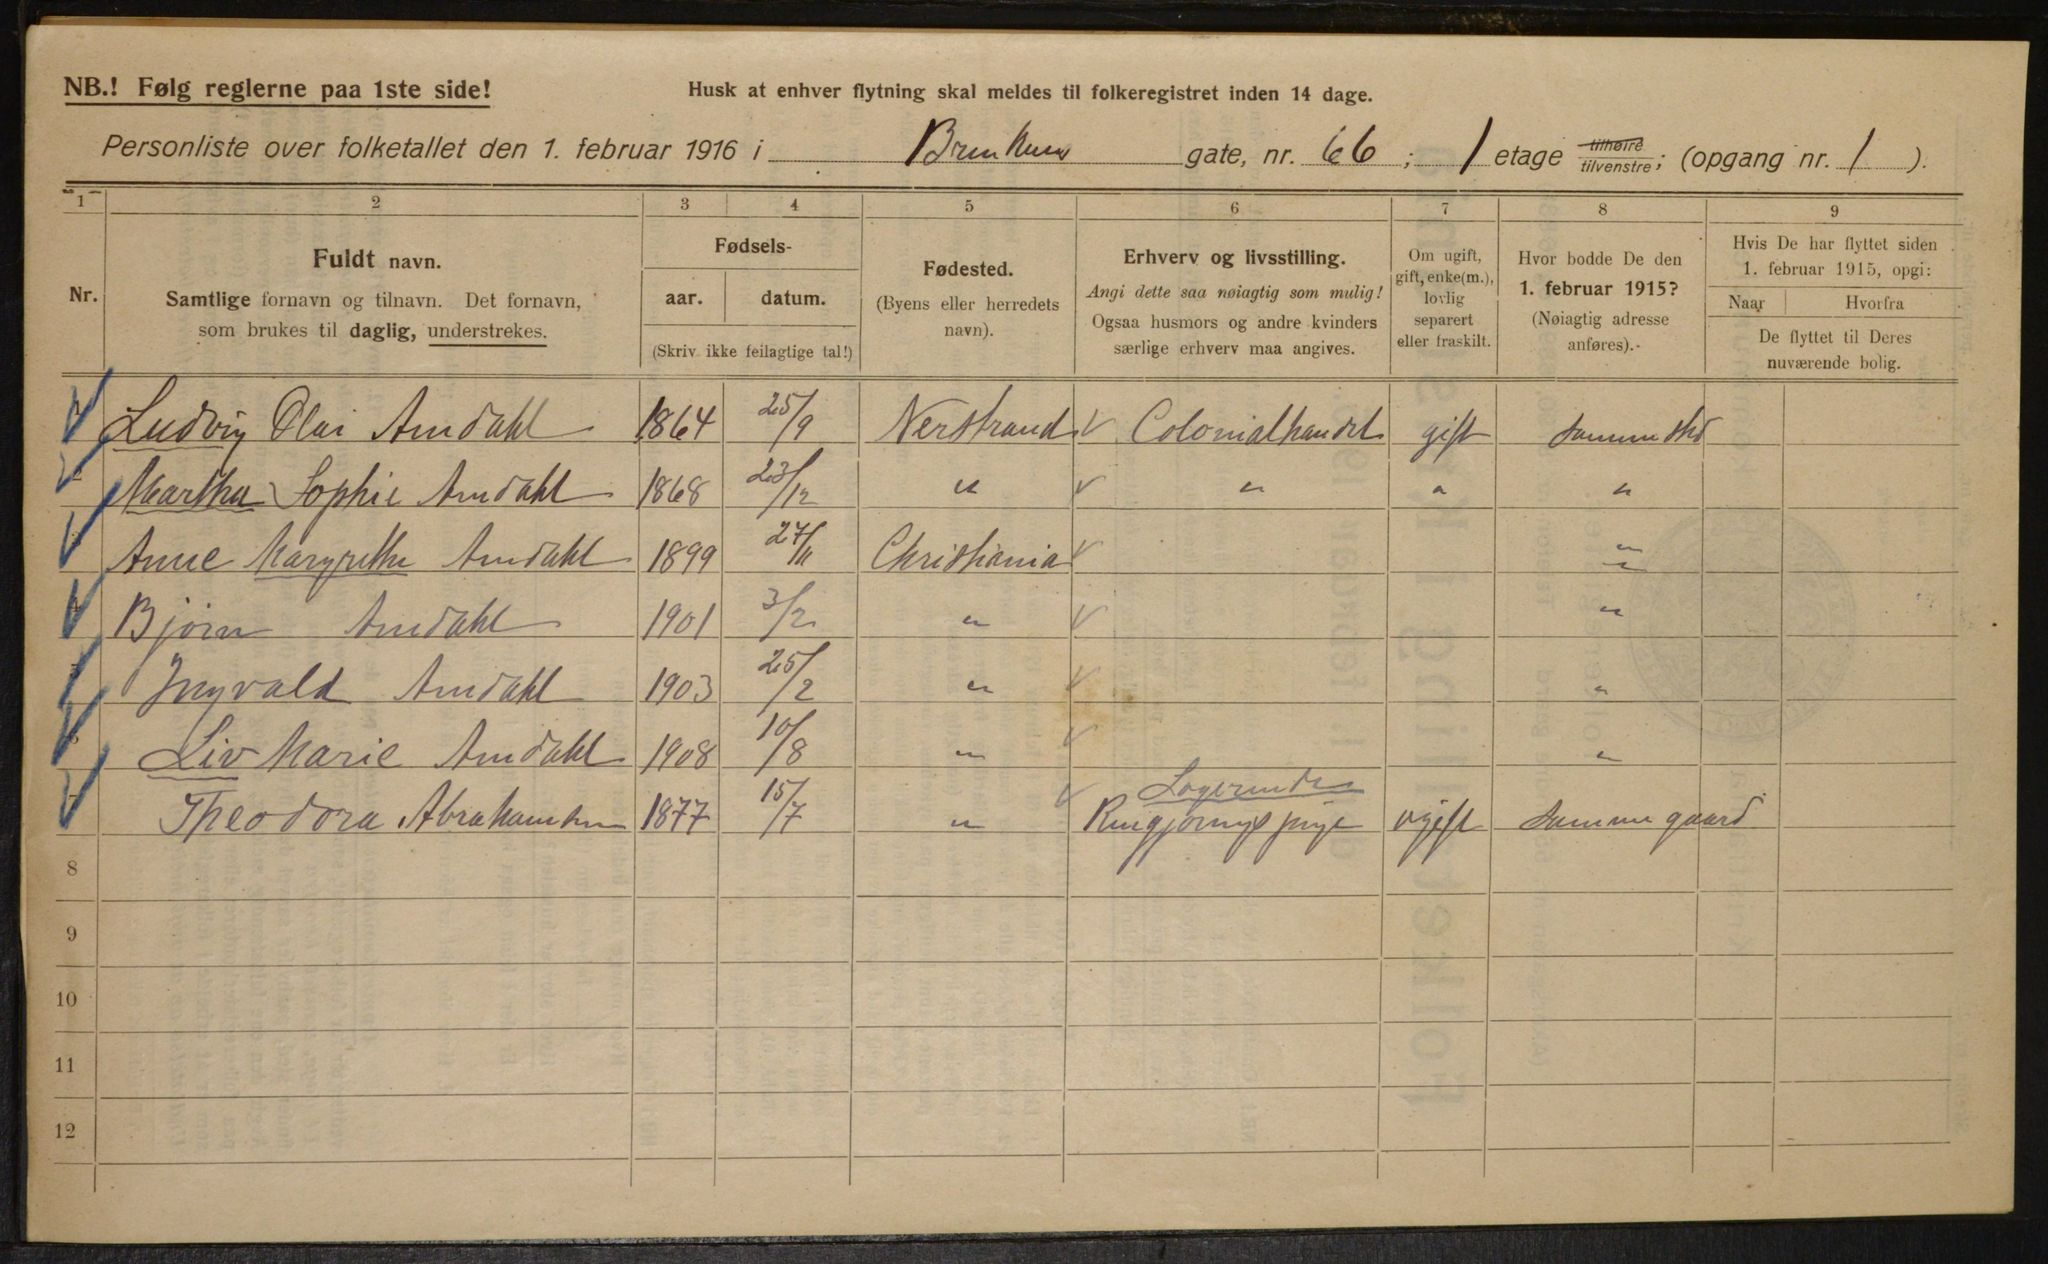 NB.! Følg reglerne paa 1ste side!
Husk at enhver flytning skal meldes til folkeregistret inden 14 dage.
Personliste over folketallet den 1. februar 1916 i gate, nr. 66; 1 etage tilhøire tilvenstre; (opgang nr. 1).
1 2 3 4 5 6 7 8 9
Nr.
Fuldt navn.
Samtlige fornavn og tilnavn. Det fornavn,
som brukes til daglig, understrekes.
Fødsels-
aar. datum.
(Skriv ikke feilagtige tal!)
Fødested.
(Byens eller herredets
navn).
Erhverv og livsstilling.
Angi dette saa nøiagtig som mulig!
Ogsaa husmors og andre kvinders
særlige erhverv maa angives.
Om ugift,
gift, enke(m.),
lovlig
separert
eller fraskilt.
Hvor bodde De den
1. februar 1915?
(Nøiagtig adresse
anføres).
Hvis De har flyttet siden
1. februar 1915, opgi:
Naar Hvorfra
De flyttet til Deres
nuværende bolig.
1 Ludvig Olai Amdahl 1864 25/9 Nerstrand Colonialhandel gift samme sted
2 Martha Sophie Amdahl 1868 23/12 " " " "
3 Anne Margrethe Amdahl 1899 27/11 Christiania "
4 Bjørn Amdahl 1901 3/2 " "
5 Ingvald Amdahl 1903 25/2 " "
6 Liv Marie Amdahl 1908 10/8 " "
Logerende
7 Theodora Abrahamsen 1877 15/7 " Rengjørings pige ugift samme gaard
8
9
10
11
12